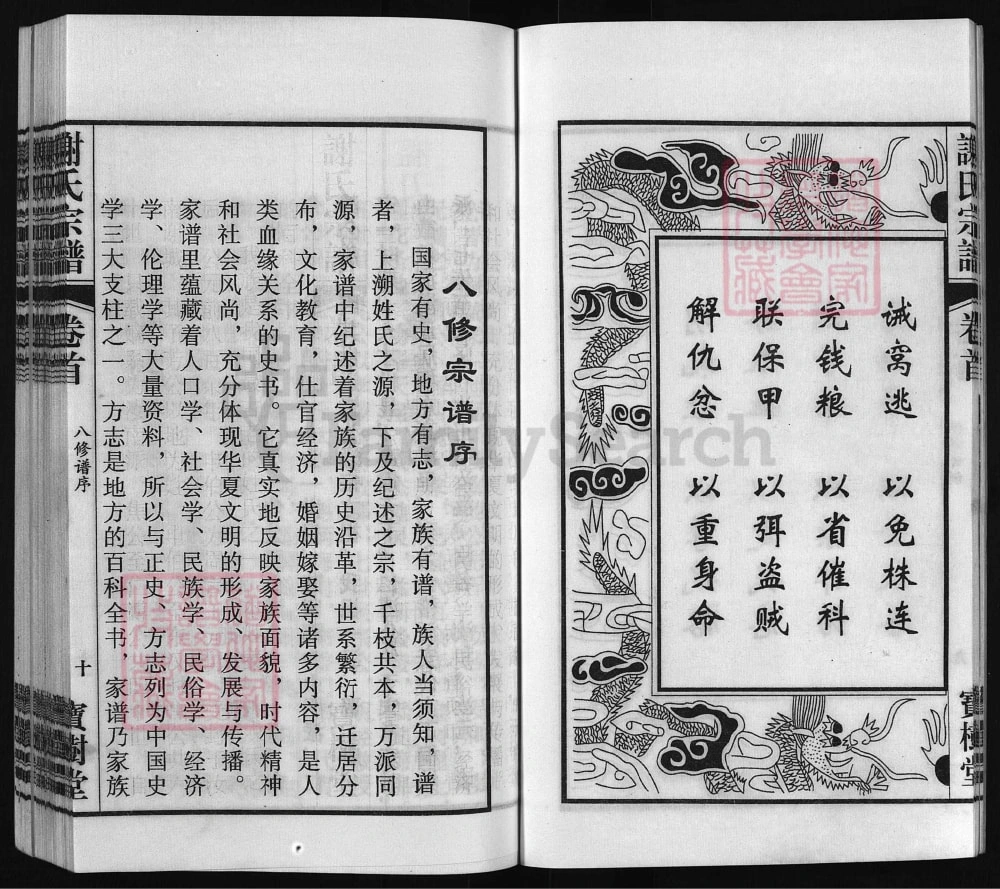 謝氏宗譜
卷首
寶樹堂
诫窝逃 以免株连
完钱粮 以省催科
联保甲 以弭盗贼
解仇忿 以重身命
八修宗谱序
国家有史，地方有志，家族有谱，族人当须知，谱
者，上溯姓氏之源，下及纪述之宗，千枝共本，万派同
源，家谱中纪述着家族的历史沿革，世系繁衍，迁居分
布，文化教育，仕官经济，婚姻嫁娶等诸多内容，是人
类血缘关系的史书。它真实地反映家族面貌，时代精神
和社会风尚，充分体现华夏文明的形成、发展与传播。
家谱里蕴藏着人口学、社会学、民族学、民俗学、经济
学、伦理学等大量资料，所以与正史、方志列为中国史
学三大支柱之一。方志是地方的百科全书，家谱乃家族
謝氏宗譜
卷首
八修谱序
十
寶樹堂
FamilySearch